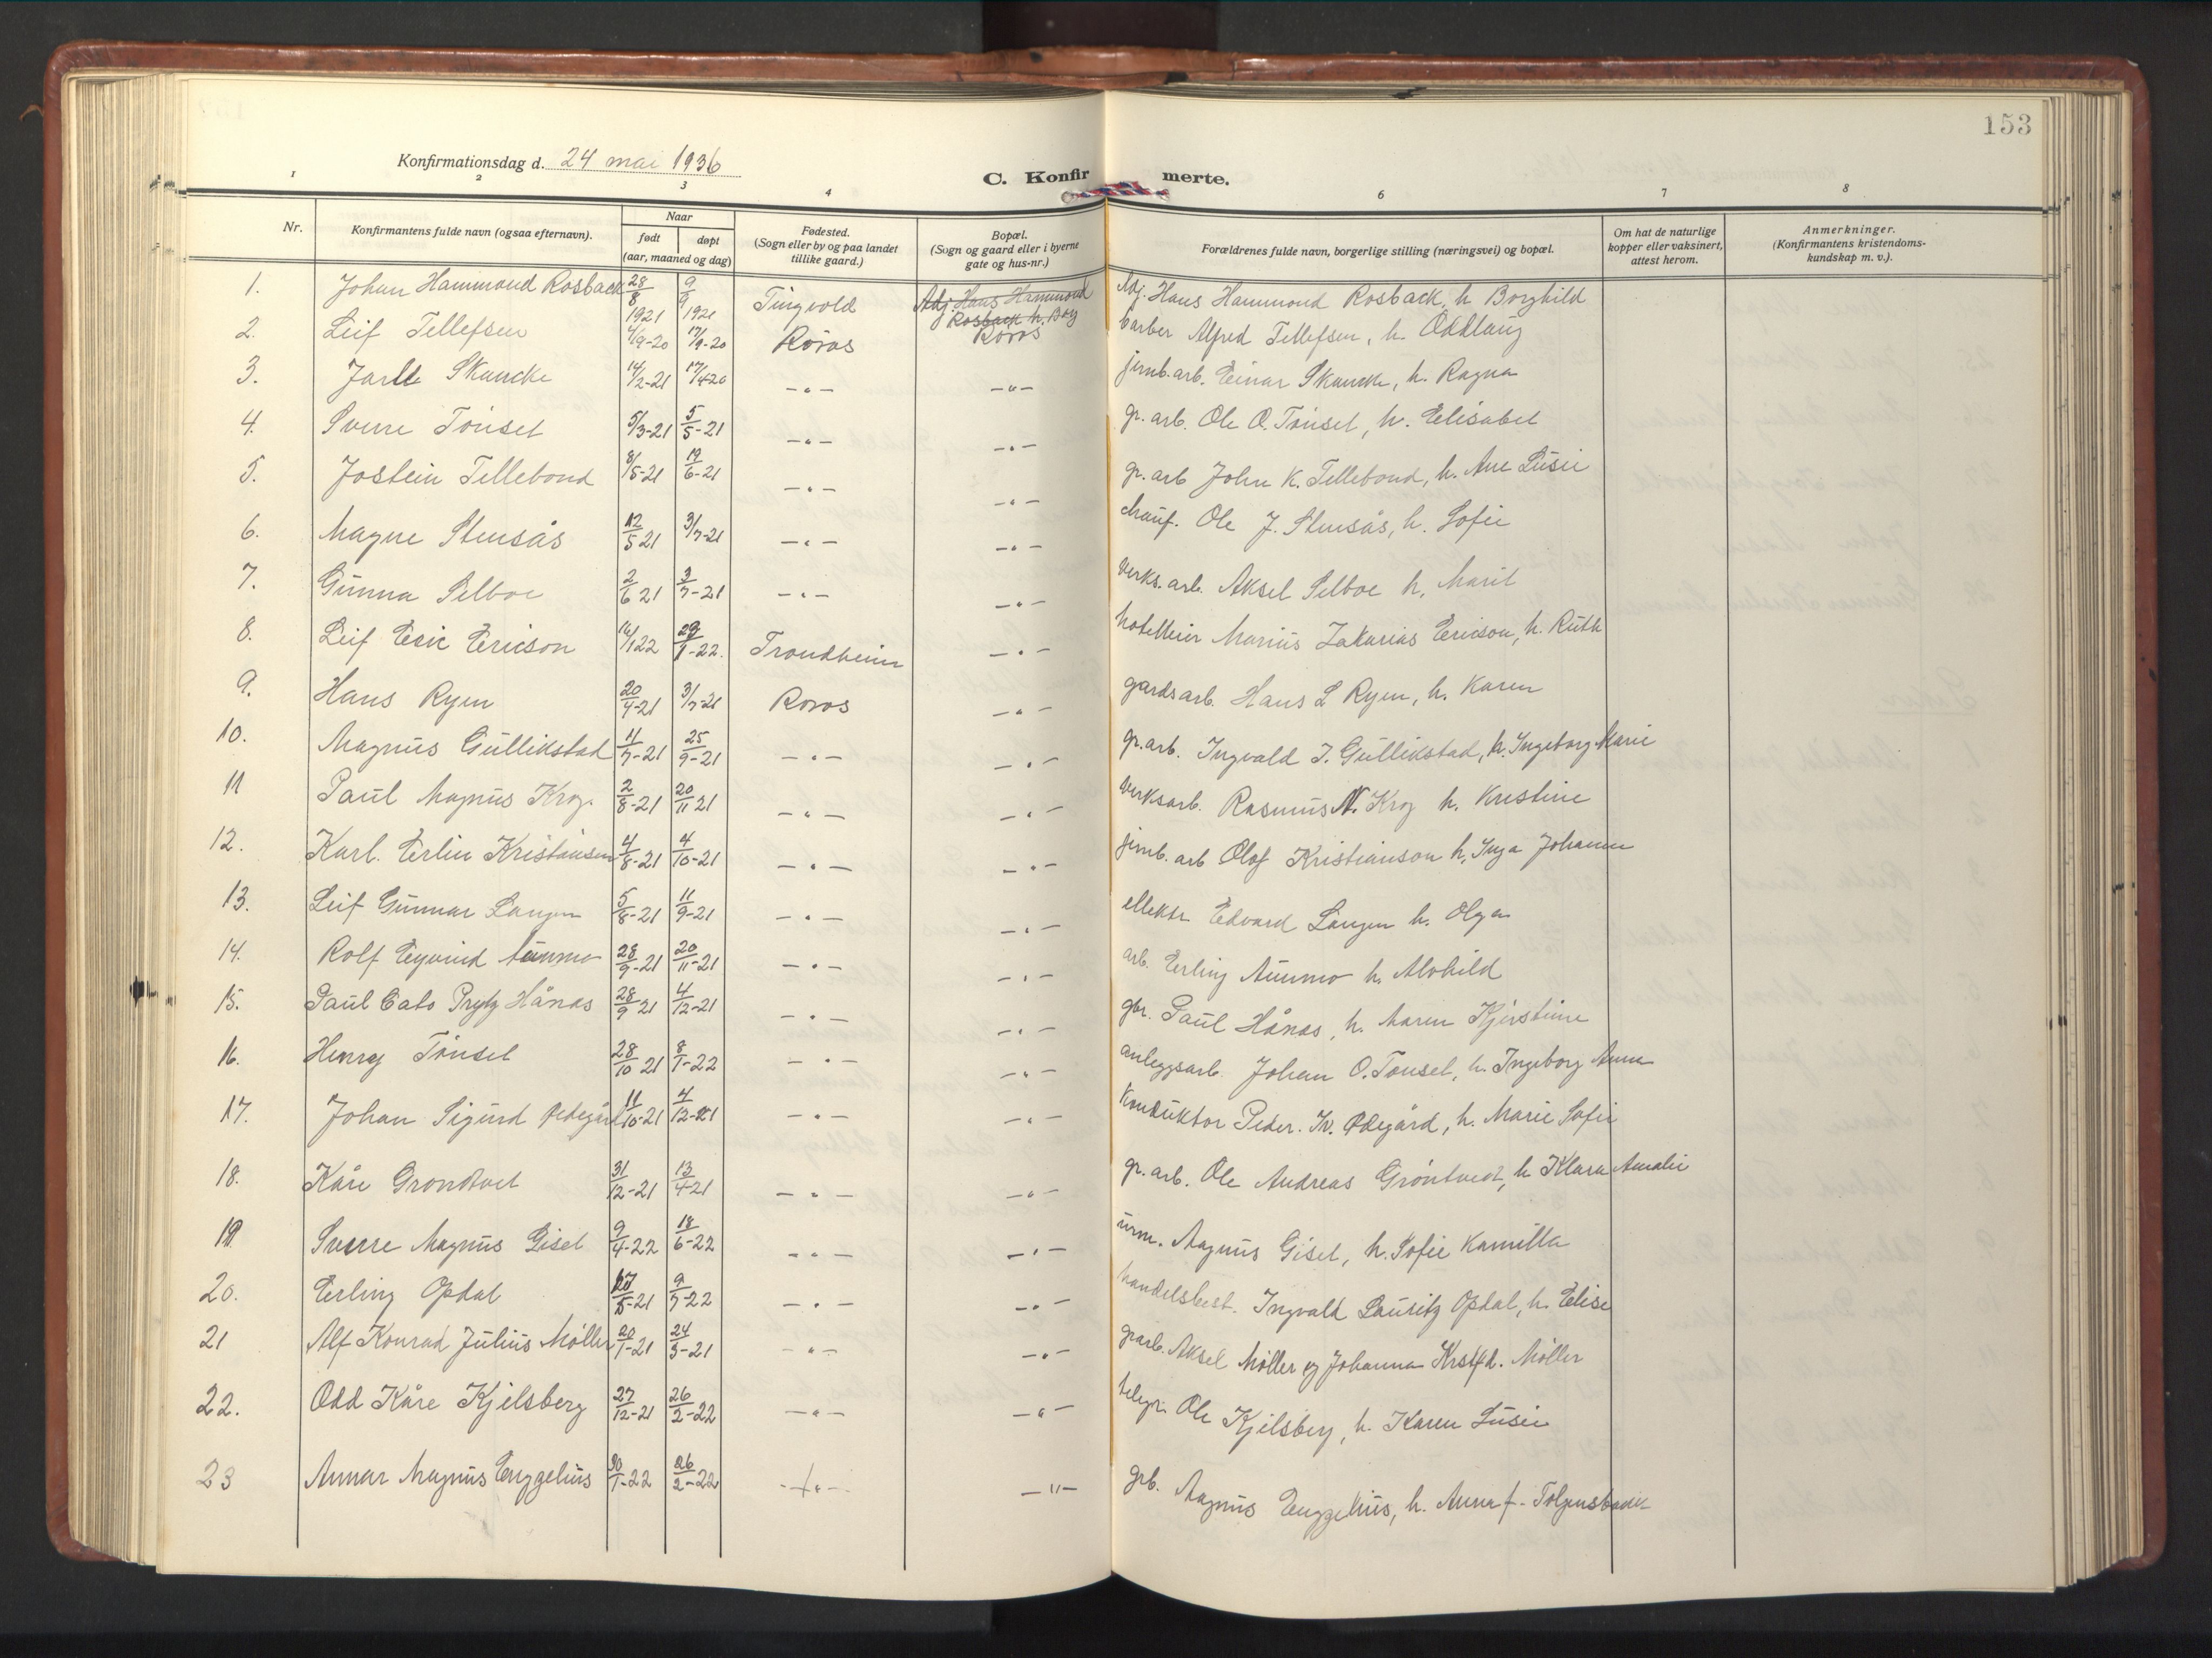 153
Konfirmationsdag d. 24 mai 1936
C. Konfirmerte.
1 2 3 4 6 7 8
Nr.
Konfirmantens fulde navn (ogsaa efternavn).
Naar
født døpt
(aar, maaned og dag)
Fødested.
(Sogn eller by og paa landet
tillike gaard.)
Bopæl.
(Sogn og gaard eller i byerne
gate og hus-nr.)
Forældrenes fulde navn, borgerlige stilling (næringsvei) og bopæl.
Om hat de naturlige
kopper eller vaksinert,
attest herom.
Anmerkninger.
(Konfirmantens kristendoms-
kundskap m. v.).
1. Johan Hammond Rosback 28/8 1921 9/9 1921 Tingvold Adj. Hans Hammond Rosback h. Borg Adj. Hans Hammond Rosback, h Borghild
2. Leif Tellefsen 4/9-20 17/9-20 Röros Röros barber Alfred Tellefsen, h. Oddlaug
3. Jarle Skancke 14/2-21 17/4-20 -"- -"- jernb.arb. Einar Skancke, h. Ragna
4. Sverre Tönset 5/3-21 5/5-21 -"- -"- gr. arb. Ole O. Tönset, h. Elisabet
5. Jostein Tellebond 8/5-21 19/6-21 -"- -"- gr. arb John K. Tellebond, h. Ane Lusie
6. Magne Stensås 12/5 21 3/7-21 -"- -"- chauf. Ole J. Stensås, h. Sofie
7. Gunna Selboe 2/6 21 3/7-21 -"- -"- verks. arb. Aksel Selboe h. Marit
8. Leif Eric Ericson 16/1 22 29/1-22. Trondheim -"- hotelleier Marius Zakarias Ericson, h. Ruth
9. Hans Ryen 20/4-21 3/7-21 Roros -"- gardsarb. Hans L Ryen, h. Karen
10. Magnus Gullikstad 11/7-21 25/9-21 -"- -"- gr. arb. Ingvald J. Gullikstad, h. Ingeborg Marie
11 Paul Magnus Krog. 2/8-21 20/11 21 -"- -"- verksarb. Rasmus N. Krog h. Kristine
12. Karl. Erlin Kristiansen 4/8-21 4/10-21 -"- -"- jernb. arb Olof Kristianson h. Inga Johanne
13. Leif Gunnar Langen 5/8-21 11/9-21 -"- -"- elektr Edvard Langen h. Olga
14. Rolf Eyvind Aunmo 28/9-21 20/11-21 -"- -"- arb. Erling Aunmo h. Alvhild
15. Paul Cato Prytz Hånes 28/9 21 4/12-21 -"- -"- gbr. Paul Hånes, h. Maren Kjerstine
16. Henry Tönset 28/10 21 8/1-22 -"- -"- anleggsarb. Johan O. Tönset, h. Ingeborg Anna
17. Johan Sigurd Ødegård 11/10-21 4/12-21 -"- -"- Konduktör Peder. Iv. Ødegård, h. Marie Sofie
18. Kåre Grondtvet 31/12-21 13/4-21 -"- -"- gr. arb. Ole Andreas Gröntvedt, h Klara Amalie
19 Sverre Magnus Gisel 9/4-22 18/6-22 -"- -"- urm. Magnus Gisel, h. Sofie Kamilla
20. Erling Opdal 17/5-21 9/7-22 -"- -"- handelsbest. Ingvald Lauritz Opdal, h. Elise
21 Alf Konrad Julius Möller 20/1-21 24/3-21 -"- -"- grarb. Aksel Möller og Johanna Krstfd. Möller
22. Odd Kåre Kjelsberg 27/12-21 26/2-22 -"- -"- telegr. Ole Kjelsberg, h. Karen Lusie
23 Annar Magnus Enggelius 30/1-22 26/2-22 -"- -"- grb. Magnus Enggelius, h. Anna f.